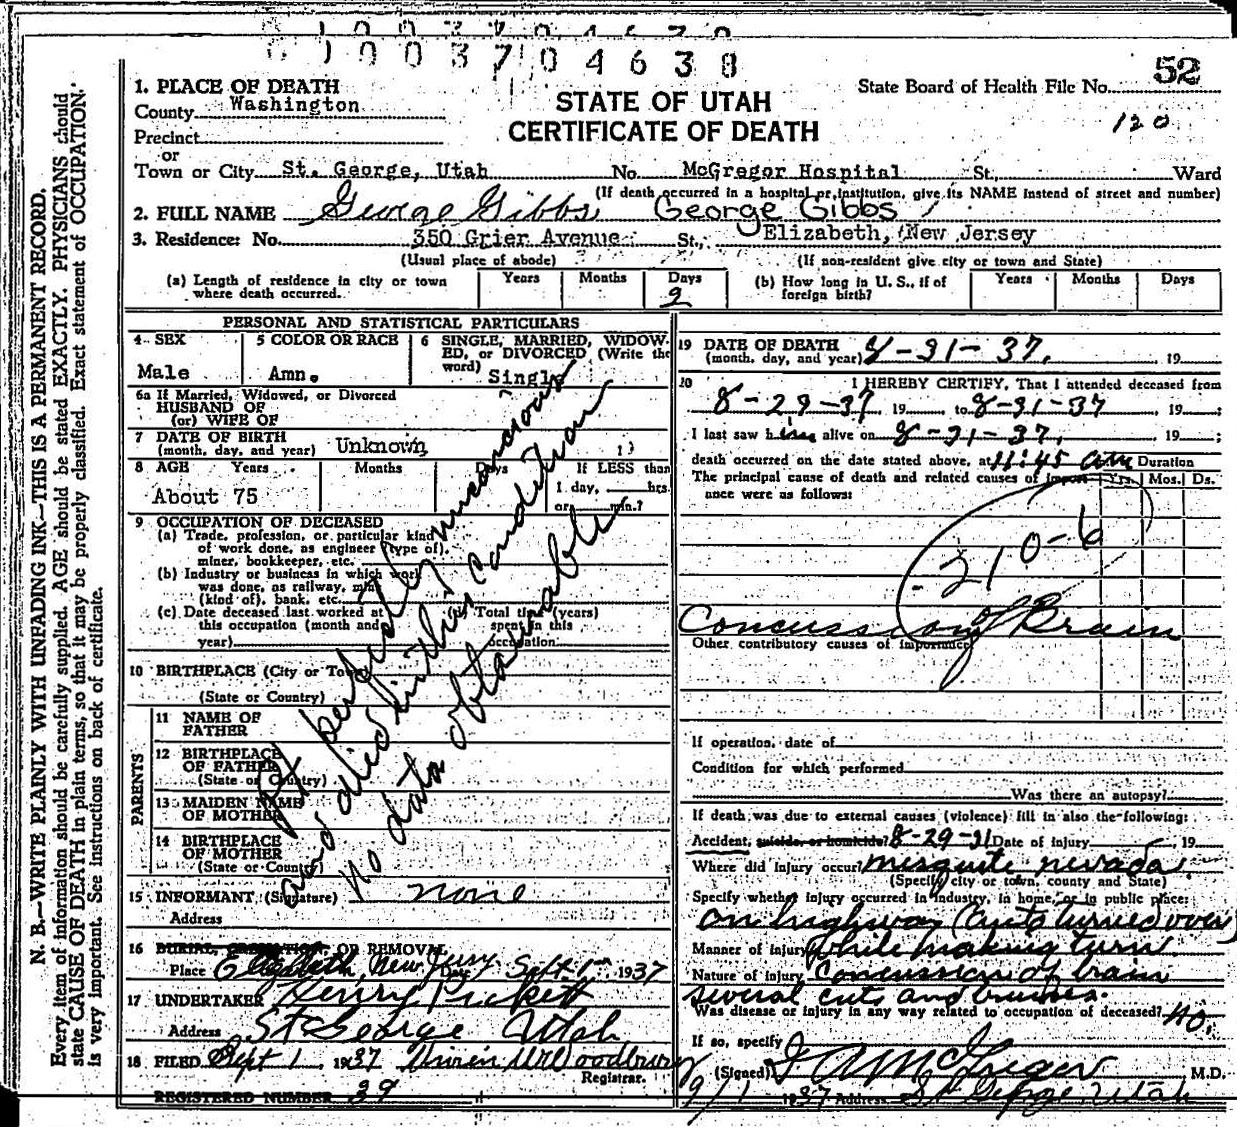 10037 04638
10037 04638
52
State Board of Health File No.
120
STATE OF UTAH
CERTIFICATE OF DEATH
1. PLACE OF DEATH
County Washington
Precinct
or
Town or City St. George, Utah No. McGregor Hospital St., Ward
(If death occurred in a hospital or institution, give its NAME instead of street and number)
2. FULL NAME George Gibbs George Gibbs
3. Residence: No. 350 Grier Avenue St., Elizabeth, New Jersey
(Usual place of abode) (If non-resident give city or town and State)
(a) Length of residence in city or town where death occurred. Years Months Days 2
(b) How long in U. S., if of foreign birth? Years Months Days
PERSONAL AND STATISTICAL PARTICULARS
4 SEX Male
5 COLOR OR RACE Amn.
6 SINGLE, MARRIED, WIDOWED, or DIVORCED (Write the word) Single
6a If Married, Widowed, or Divorced
HUSBAND OF
(or) WIFE OF
7 DATE OF BIRTH
(month, day, and year) Unknown
8 AGE Years Months Days If LESS than
1 day, hrs.
or min.?
About 75
9 OCCUPATION OF DECEASED
(a) Trade, profession, or particular kind
of work done, as engineer (type of),
miner, bookkeeper, etc.
(b) Industry or business in which work
was done, as railway, mine
(kind of), bank, etc.
(c) Date deceased last worked at
this occupation (month and
year)
(d) Total time (years)
spent in this
occupation
10 BIRTHPLACE (City or Town)
(State or Country)
PARENTS
11 NAME OF
FATHER
12 BIRTHPLACE
OF FATHER
(State or Country)
13 MAIDEN NAME
OF MOTHER
14 BIRTHPLACE
OF MOTHER
(State or Country)
Pt brought unconscious
and died in this condition
No data obtainable
15 INFORMANT (Signature) none
Address
16 BURIAL, CREMATION, OR REMOVAL
Place Elizabeth, New Jersey Date Sept 1st 1937
17 UNDERTAKER Henry Pickett
Address St George Utah
18 FILED Sept 1, 1937 Woodbury
Registrar.
REGISTERED NUMBER 39
19 DATE OF DEATH
(month, day, and year) 8-31-37. , 19
20 I HEREBY CERTIFY, That I attended deceased from
8-29-37, 19 to 8-31-37, 19 ;
I last saw him alive on 8-31-37, 19 ;
death occurred on the date stated above, at 11:45 am Duration
The principal cause of death and related causes of importance were as follows: Yrs. Mos. Ds.
210-6
Concussion of Brain
Other contributory causes of importance
If operation, date of
Condition for which performed
Was there an autopsy?
If death was due to external causes (violence) fill in also the following:
Accident, suicide, or homicide? 8-29-31 Date of injury , 19
Where did injury occur? mesquite nevada
(Specify city or town, county and State)
Specify whether injury occurred in industry, in home, or in public place:
on highway (auto turned over
Manner of injury while making turn
Nature of injury concussion of brain
several cuts and bruises.
Was disease or injury in any way related to occupation of deceased? No.
If so, specify
(Signed) McGregor M.D.
9/1 1937 Address St George, Utah
N. B.—WRITE PLAINLY WITH UNFADING INK—THIS IS A PERMANENT RECORD.
Every item of information should be carefully supplied. AGE should be stated EXACTLY. PHYSICIANS should
state CAUSE OF DEATH in plain terms, so that it may be properly classified. Exact statement of OCCUPATION
is very important. See instructions on back of certificate.